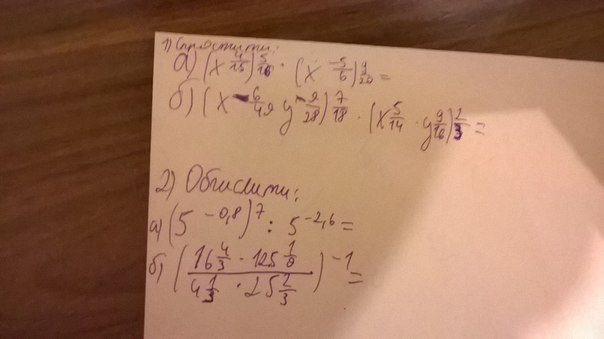 1) Спростити:
а) (x^4/15)^5/16 · (x^-5/6)^9/20 =
б) (x^-6/49 y^-9/28)^7/18 · (x^5/14 · y^9/16)^2/3 =
2) Обчислити:
а) (5^-0,8)^7 : 5^-2,6 =
б) (16^4/3 · 125^1/9 / 4^1/3 · 25^2/3)^-1 =